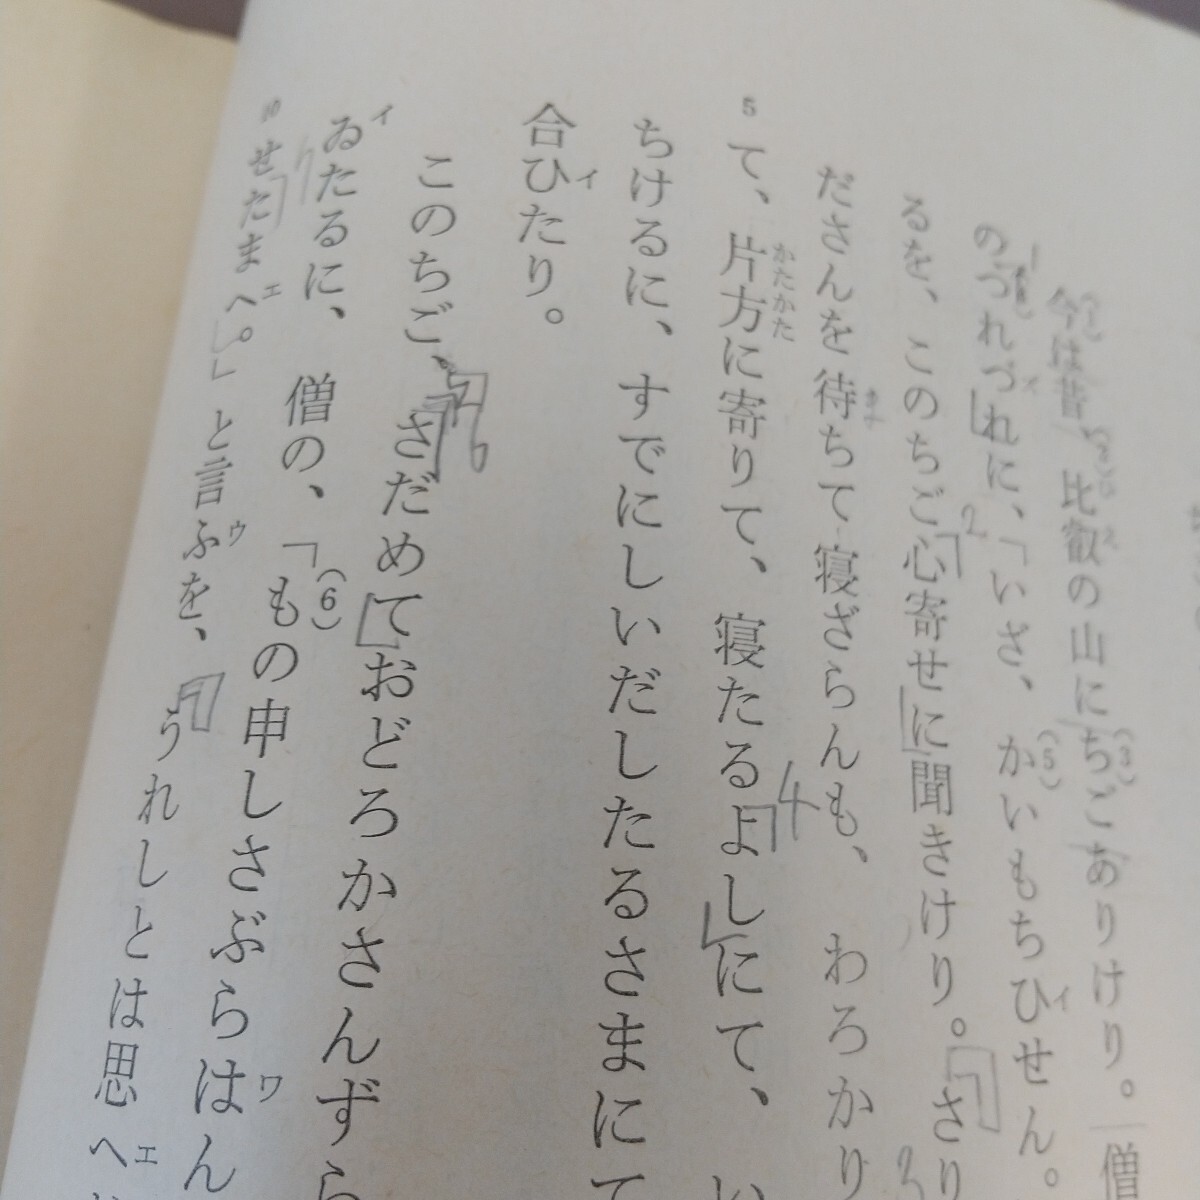 今は昔、比叡の山にちごありけり。僧
のつれづれに、「いざ、かいもちひせん。
るを、このちご心寄せに聞きけり。さり
ださんを待ちて寝ざらんも、わろかり
て、片方に寄りて、寝たるよしにて、い
ちけるに、すでにしいだしたるさまにて
合ひたり。
このちご、さだめておどろかさんずら
ゐたるに、僧の、「もの申しさぶらはん
せたまへ。」と言ふを、うれしとは思へ